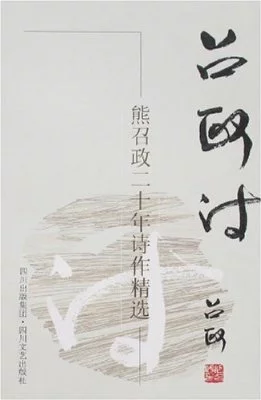 召政诗
召政
熊召政二十年诗作精选
四川出版集团·四川文艺出版社